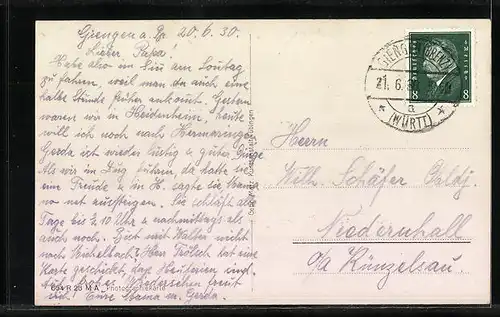 Giengen a. Br. 20.6.30.
Lieber Papa!
Habe also im Sinn am Sonntag
zu fahren, weil man da auch eine
halbe Stunde früher ankommt. Gestern
waren wir in Heidenheim, heute
will ich noch nach Hermaringen
Gerda ist wieder lustig u. guter Dinge
Als wir im Zug fuhren, da hatte sie
eine Freude u. in H. sagte sie, Mama
no net aussteigen. Es gefällt uns
Tage bis 10 Uhr u. nachmittags als
auch noch. Bist mit Walter nicht
nach Michelbach? Herr
Karte geschickt, dass
Wiedersehen freut
sich! Eure Mama u. Gerda.
654 R 25 M A Photographiekarte
GIENGEN (BRENZ)
21.6.
a
* (WÜRTT) *
Deutsches Reich
8 8
Herrn
Wilh. Schäfer
Niedernhall
o/a Künzelsau.